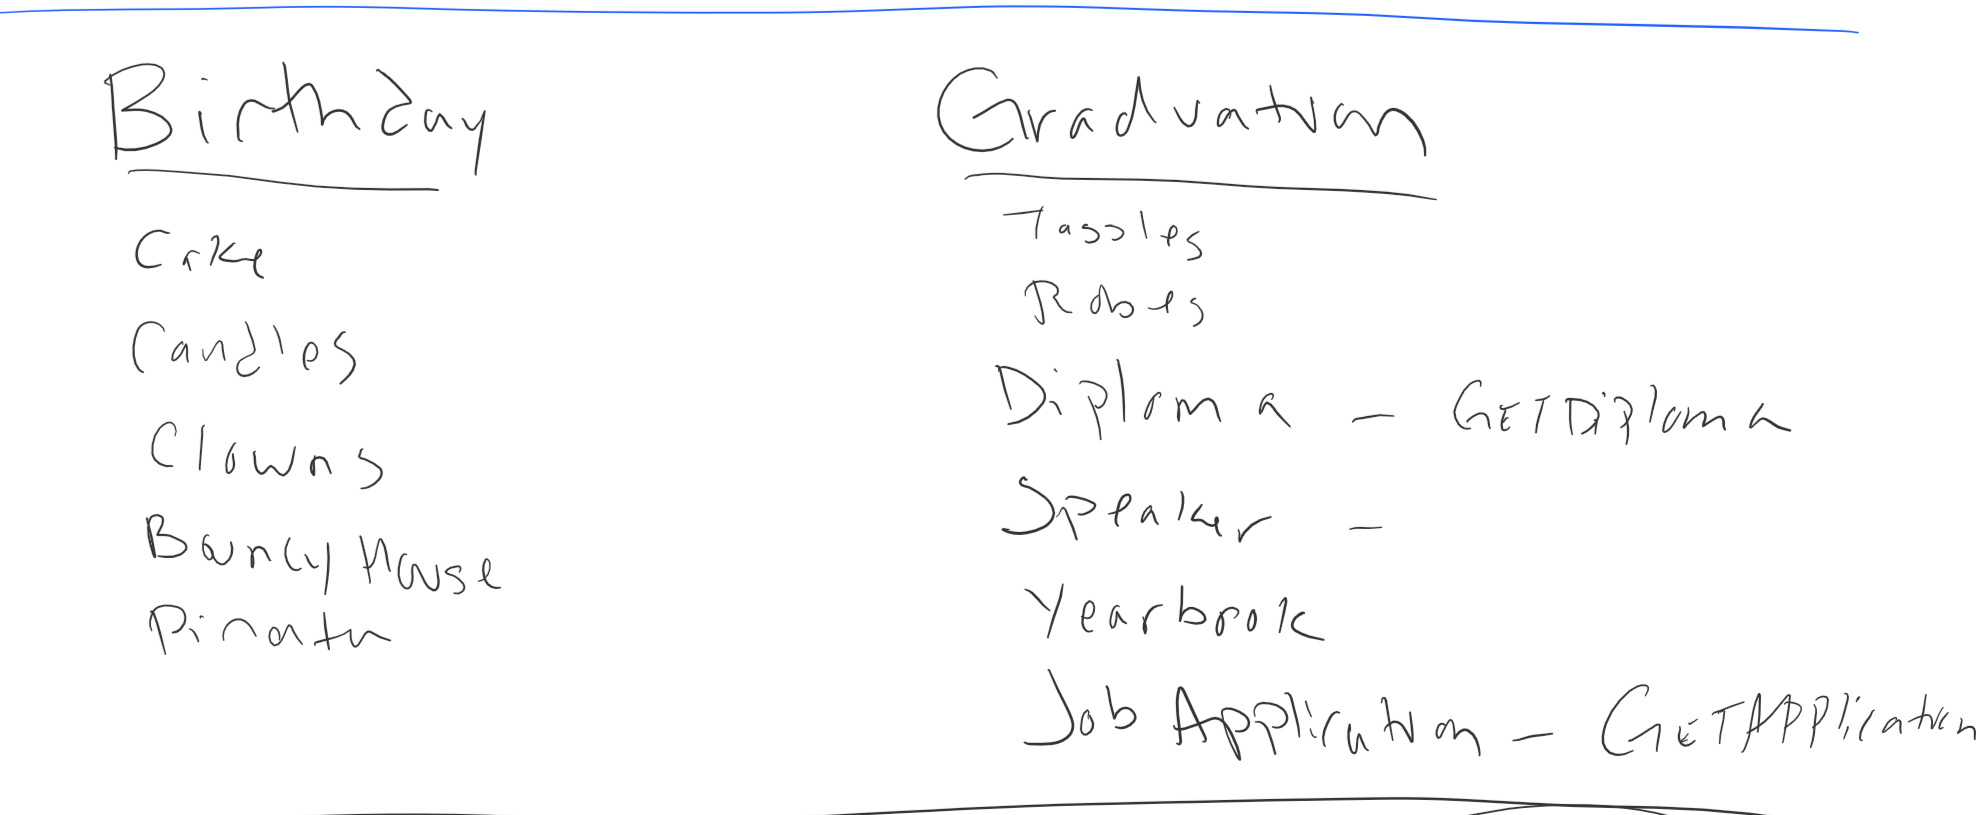 Birthday
Cake
Candles
Clowns
Bouncy House
Pinata
Graduation
Tassles
Robes
Diploma - GETDiploma
Speaker -
Yearbook
Job Application - GETAPPlication